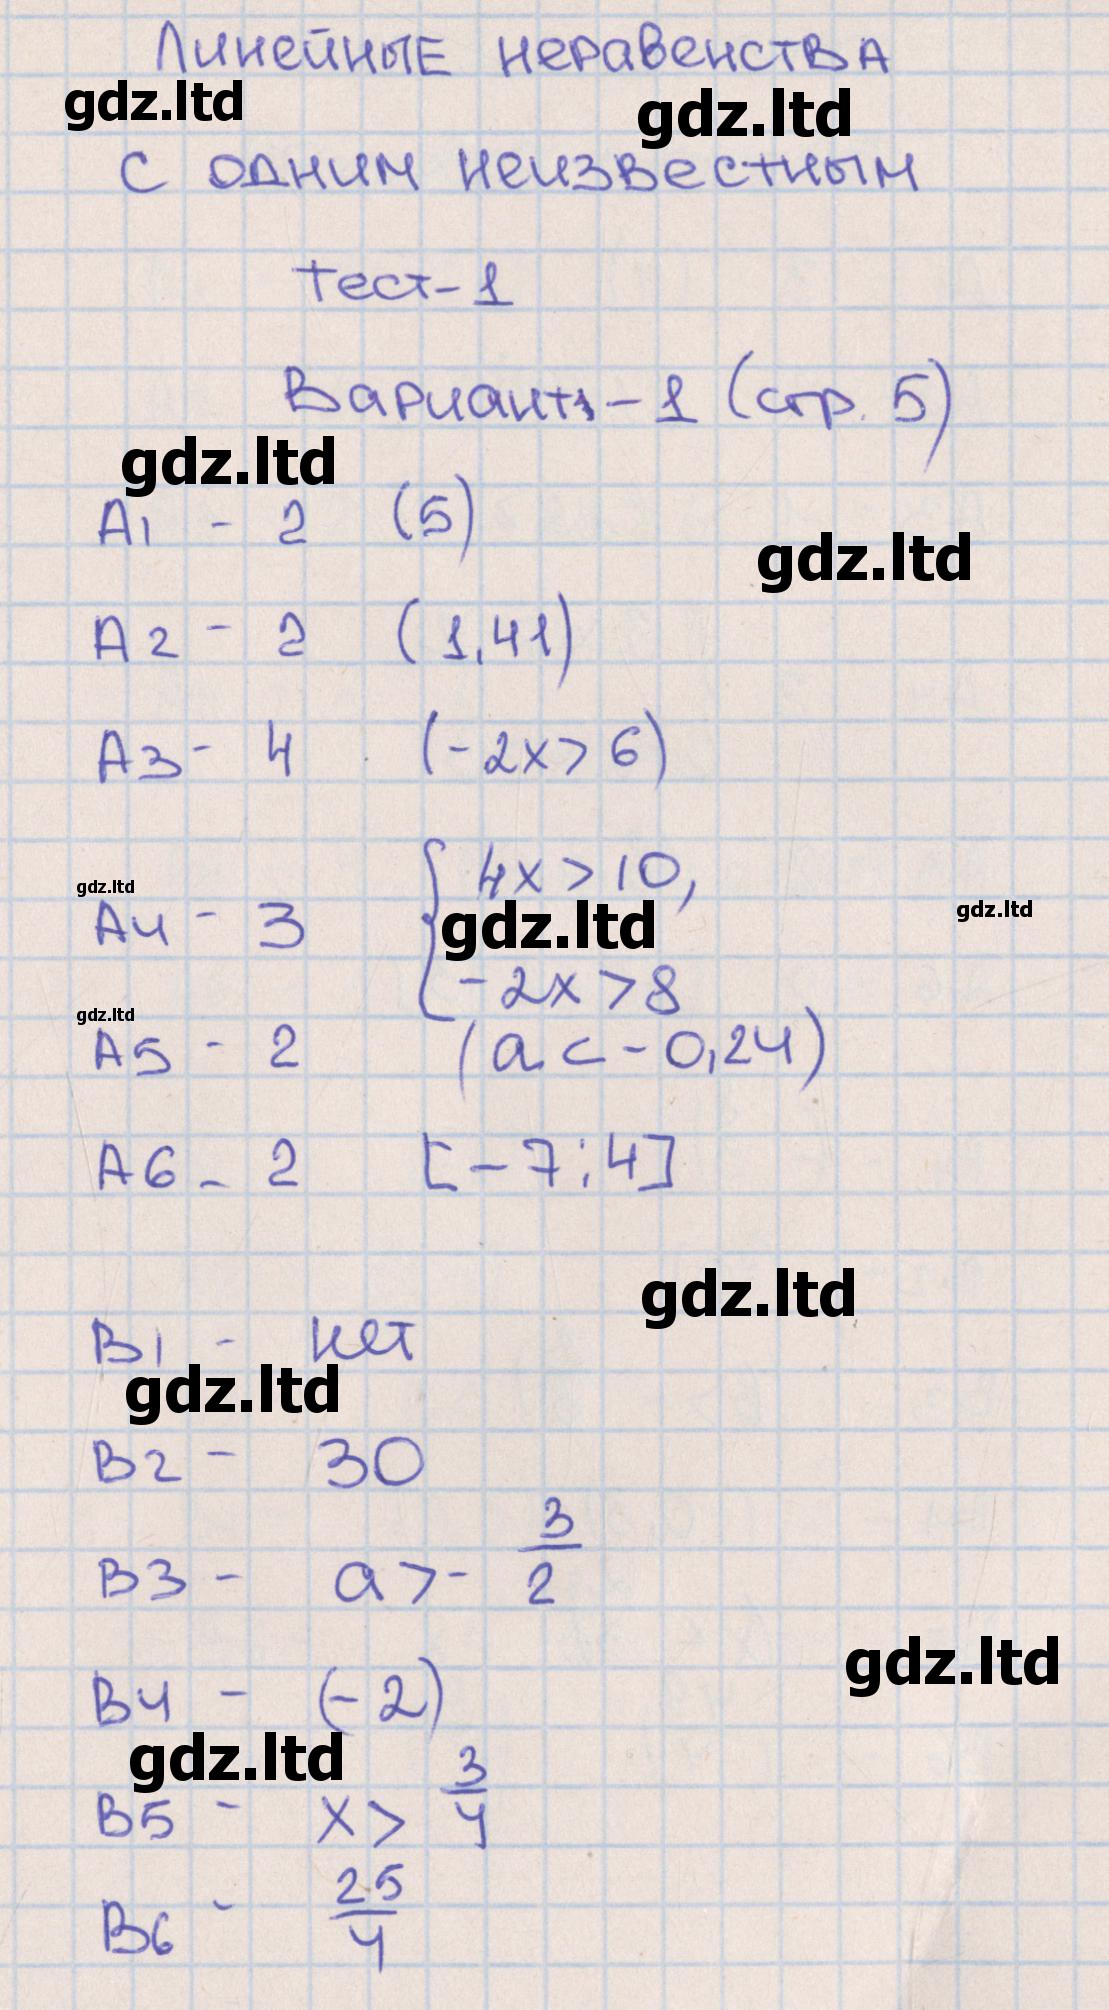 Линейные неравенства
gdz.ltd gdz.ltd
с одним неизвестным
Тест-1
Вариант-1 (стр. 5)
gdz.ltd
А1 - 2 (5)
gdz.ltd
А2 - 2 (1,41)
А3 - 4 (-2x > 6)
gdz.ltd
А4 - 3 { 4x > 10,
gdz.ltd gdz.ltd
-2x > 8
gdz.ltd
А5 - 2 (a < -0,24)
А6 - 2 [-7;4]
gdz.ltd
В1 - нет
gdz.ltd
В2 - 30
В3 - a > - 3/2
gdz.ltd
В4 - (-2)
gdz.ltd
В5 - x > 3/4
В6 - 25/4